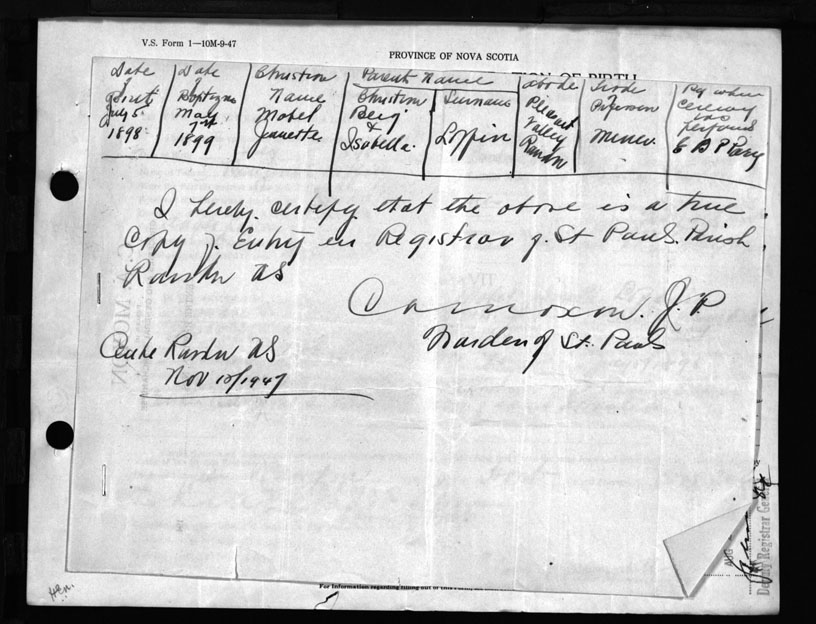 V.S. Form 1—10M-9-47
PROVINCE OF NOVA SCOTIA
Date of Birth July 5 1898
Date of May 7th 1899
Christian Name Mabel Jeanette
Parents Name
Christian Benj & Isabella.
Surname
abode Pleasant Valley Rawdon
Trade
By whom ceremony was performed
I hereby certify that the above is a true
copy of Entry in Registrar of St Pauls Parish
Rawdon NS
J.P.
Warden of St. Pauls
Centre Rawdon NS
Nov 10/1947
For information regarding filling out of this
Deputy Registrar General
AUG